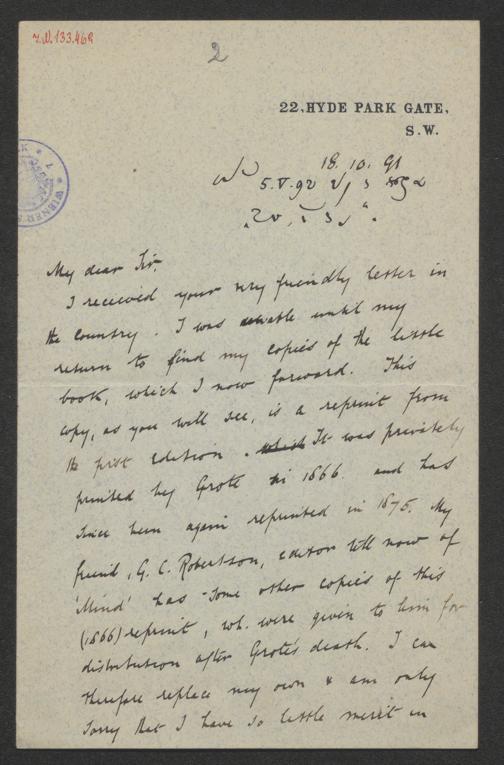 z.W. 133.469
2
22, HYDE PARK GATE,
S.W.
18. 10. 91
5.V.92
My dear Sir,
I received your very friendly letter in
the country. I was unable until my
return to find my copies of the little
book, which I now forward. This
copy, as you will see, is a reprint from
the first edition. which It was privately
printed by Grote in 1866 and has
since been again reprinted in 1875. My
friend, G. C. Robertson, editor till now of
'Mind' has some other copies of this
(1866) reprint, wh. were given to him for
distribution after Grote's death. I can
therefore replace my own & am only
sorry that I have so little merit in